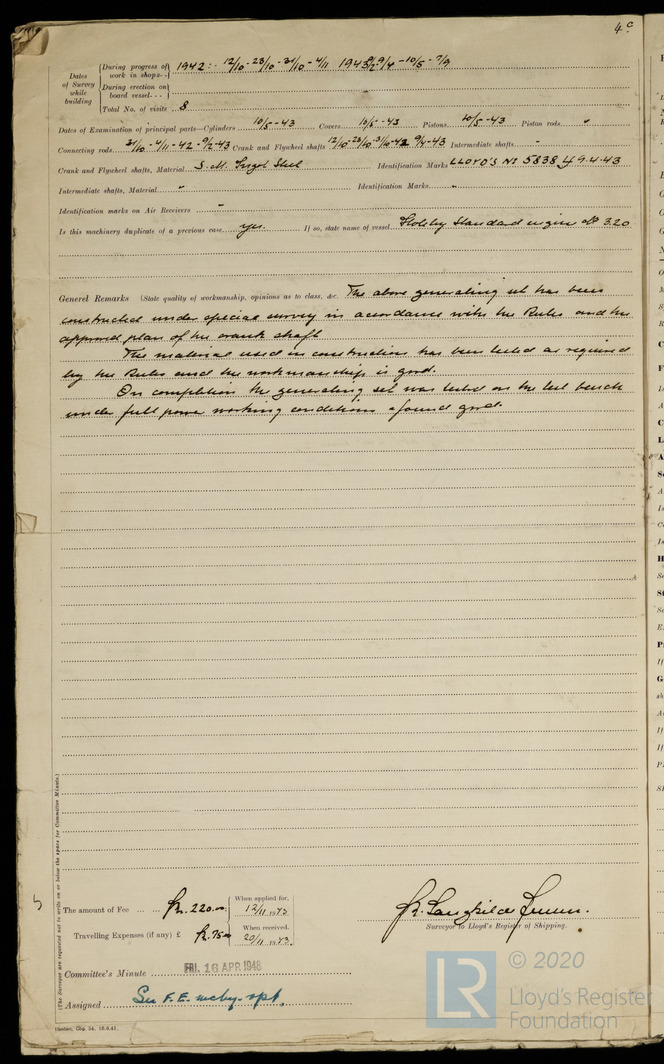 4c
Dates of Survey while building
During progress of work in shops - - 1942:- 12/10 - 23/10 - 31/10 - 4/11 1943 9/2 9/4 - 10/5 - 7/9
During erection on board vessel - - -
Total No. of visits 8
Dates of Examination of principal parts—Cylinders 10/5-43 Covers 10/5-43 Pistons 10/5-43 Piston rods "
Connecting rods 31/10 - 4/11-42 - 9/2-43 Crank and Flywheel shafts 12/10-23/10-31/10-42 9/4-43 Intermediate shafts -
Crank and Flywheel shafts, Material S.M. Ingot Steel Identification Marks LLOYD'S No 5838 9.4.43
Intermediate shafts, Material " Identification Marks "
Identification marks on Air Receivers -
Is this machinery duplicate of a previous case yes. If so, state name of vessel Standard engine 320
General Remarks (State quality of workmanship, opinions as to class, &c. The above generating set has been
constructed under special survey in accordance with the Rules and the
approved plan of the crank shaft
The material used in construction has been tested as required
by the Rules and the workmanship is good.
On completion the generating set was tested on the test bench
under full power working conditions & found good.
(The Surveyor are requested not to write on or below the space for Committee Minute.)
The amount of Fee ... Kr. 220.00 When applied for, 12/11 1943
Travelling Expenses (if any) £ Kr. 75.00 When received, 20/11 1943
Surveyor to Lloyd's Register of Shipping.
Committee's Minute FRI. 16 APR 1948
Assigned See F.E. mchy. rpt.
© 2020
LR
Lloyd's Register
Foundation